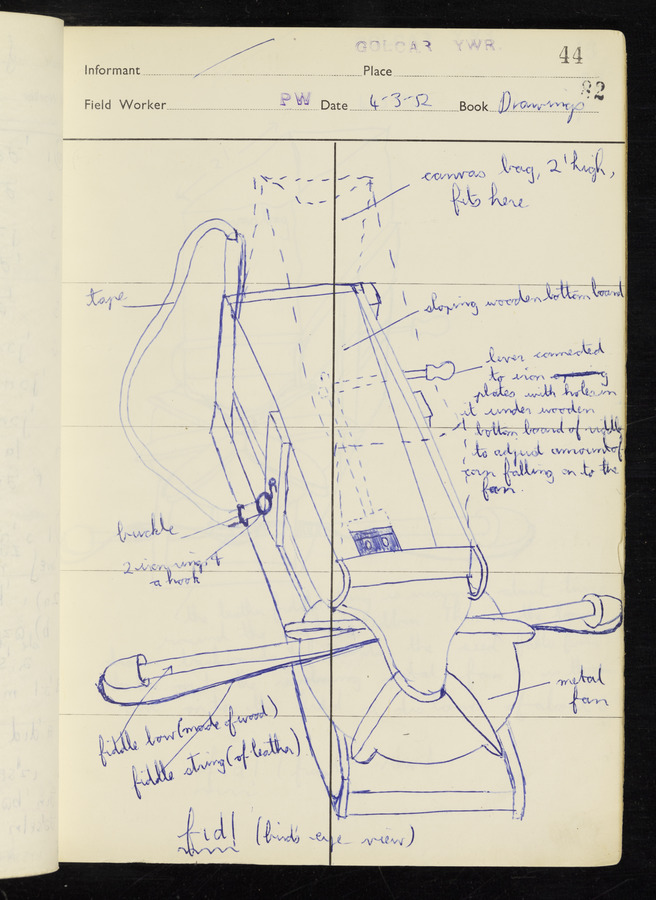 GOLCAR YWR.
44
Informant
Place
82
Field Worker PW Date 4-3-52 Book Drawings
canvas bag, 2' high,
fits here
tape
sloping wooden bottom board
lever connected
to iron
plates with holes in
it under wooden
bottom board of
to adjust amount of
corn falling on to the
fan.
buckle
2 iron rings &
a hook
metal
fan
fiddle bow (made of wood)
fiddle string (of leather)
fid! (bird's eye view)